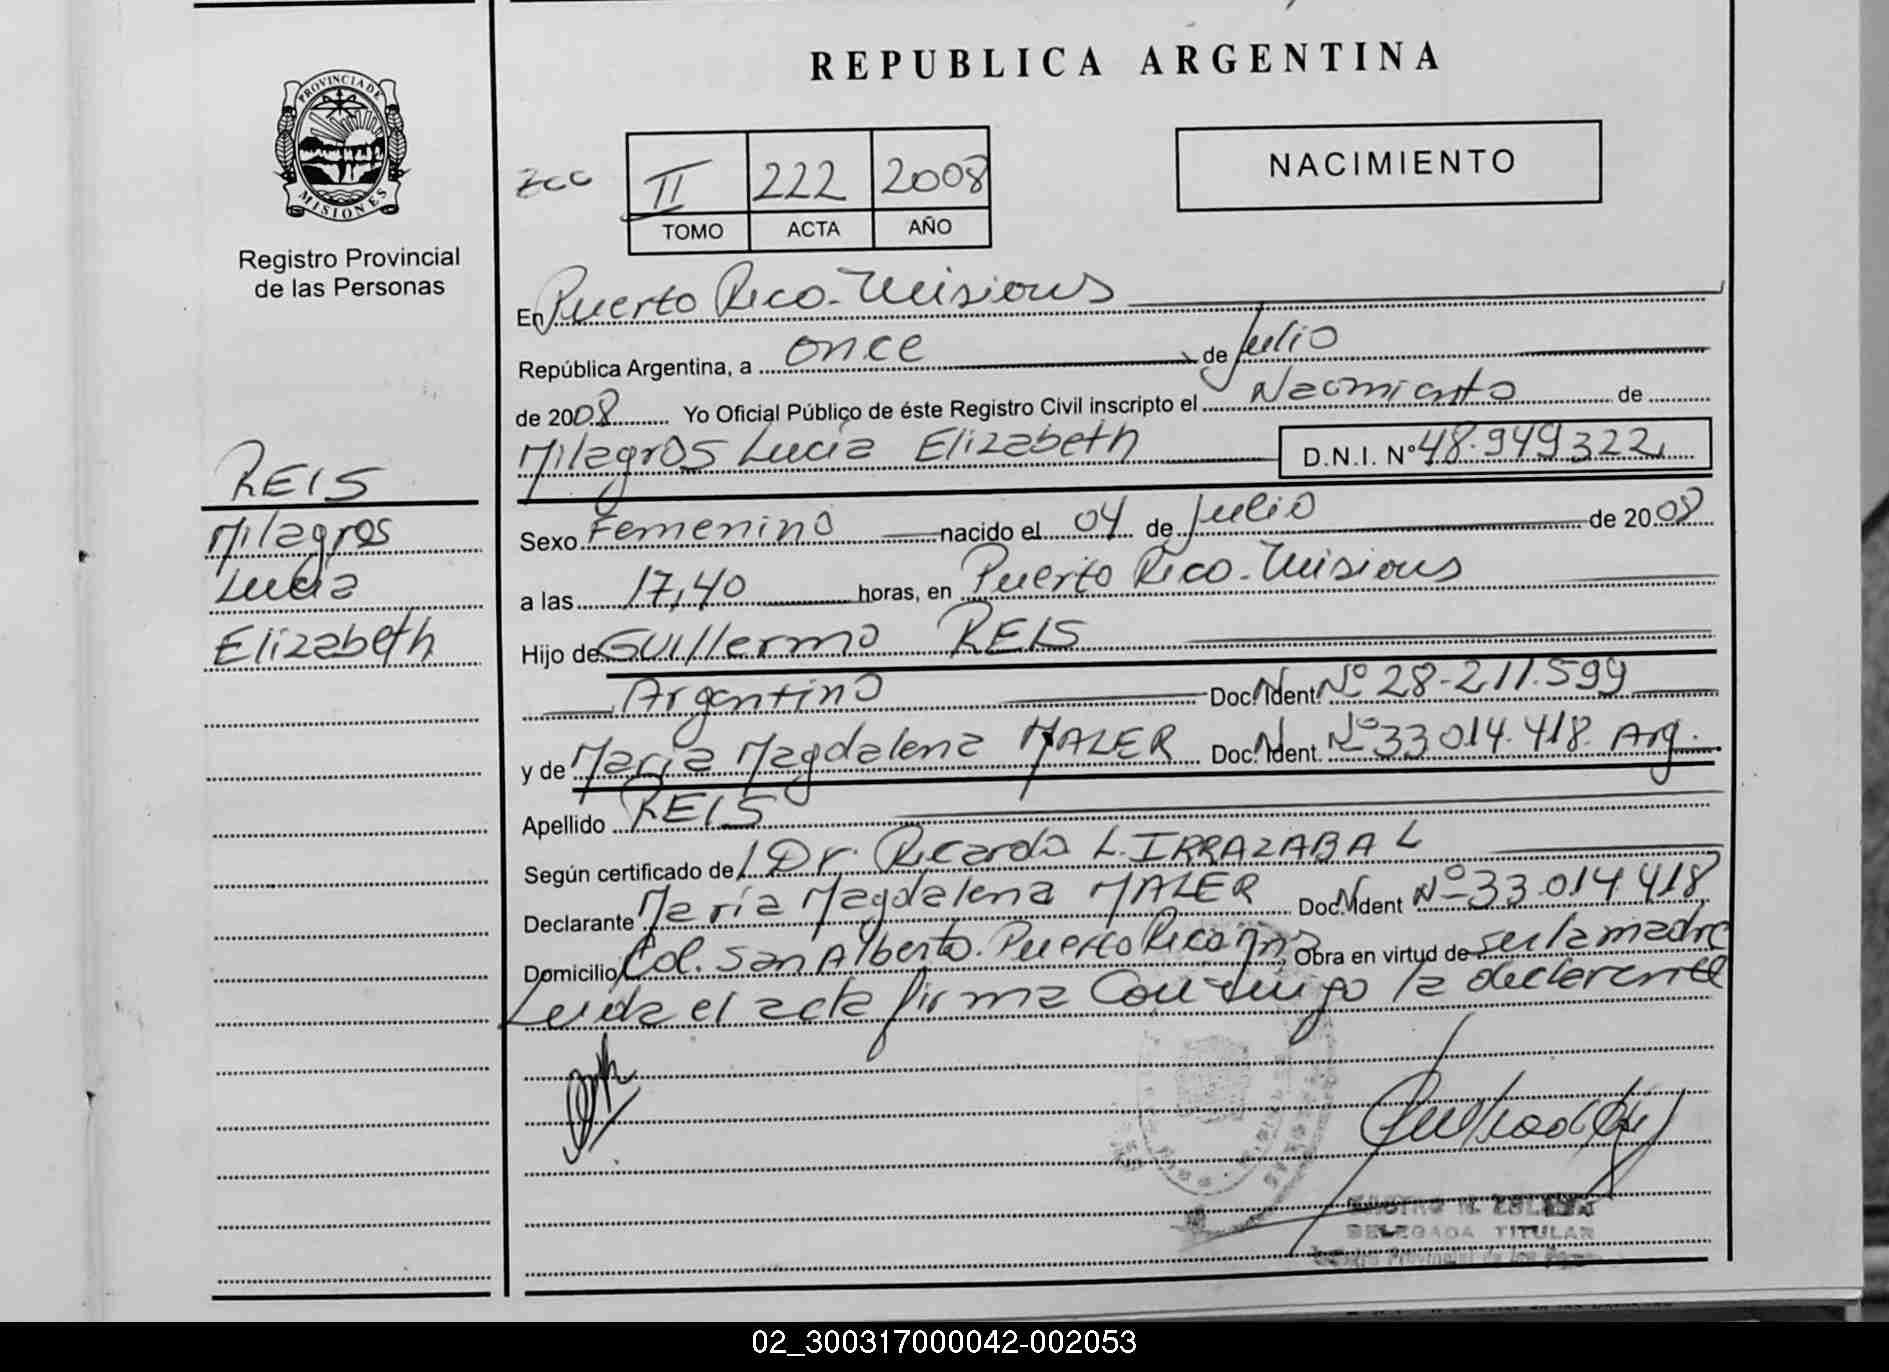 REPUBLICA ARGENTINA
PROVINCIA DE
MISIONES
Registro Provincial
de las Personas
II 222 2008
TOMO ACTA AÑO
NACIMIENTO
En Puerto Rico - Misiones
República Argentina, a once de Julio
de 2008 Yo Oficial Público de éste Registro Civil inscripto el Nacimiento de
Milagros Lucía Elizabeth D.N.I. Nº 48.949322
REIS
Milagros
Lucía
Elizabeth
Sexo Femenino nacido el 04 de Julio de 2008
a las 17,40 horas, en Puerto Rico - Misiones
Hijo de Guillermo REIS
Argentino Doc. Ident. Nº 28.211.599
y de María Magdalena MALER Doc. Ident. Nº 33014.418. Arg.
Apellido REIS
Según certificado del Dr. Ricardo L. IRRAZABAL
Declarante María Magdalena MALER Doc. Ident Nº 33.014418
Domicilio Col. San Alberto. Puerto Rico Mns Obra en virtud de ser la madre
Leida el acta firma conmigo la declarante
DELEGADA TITULAR
Provincial de las
02_300317000042-002053